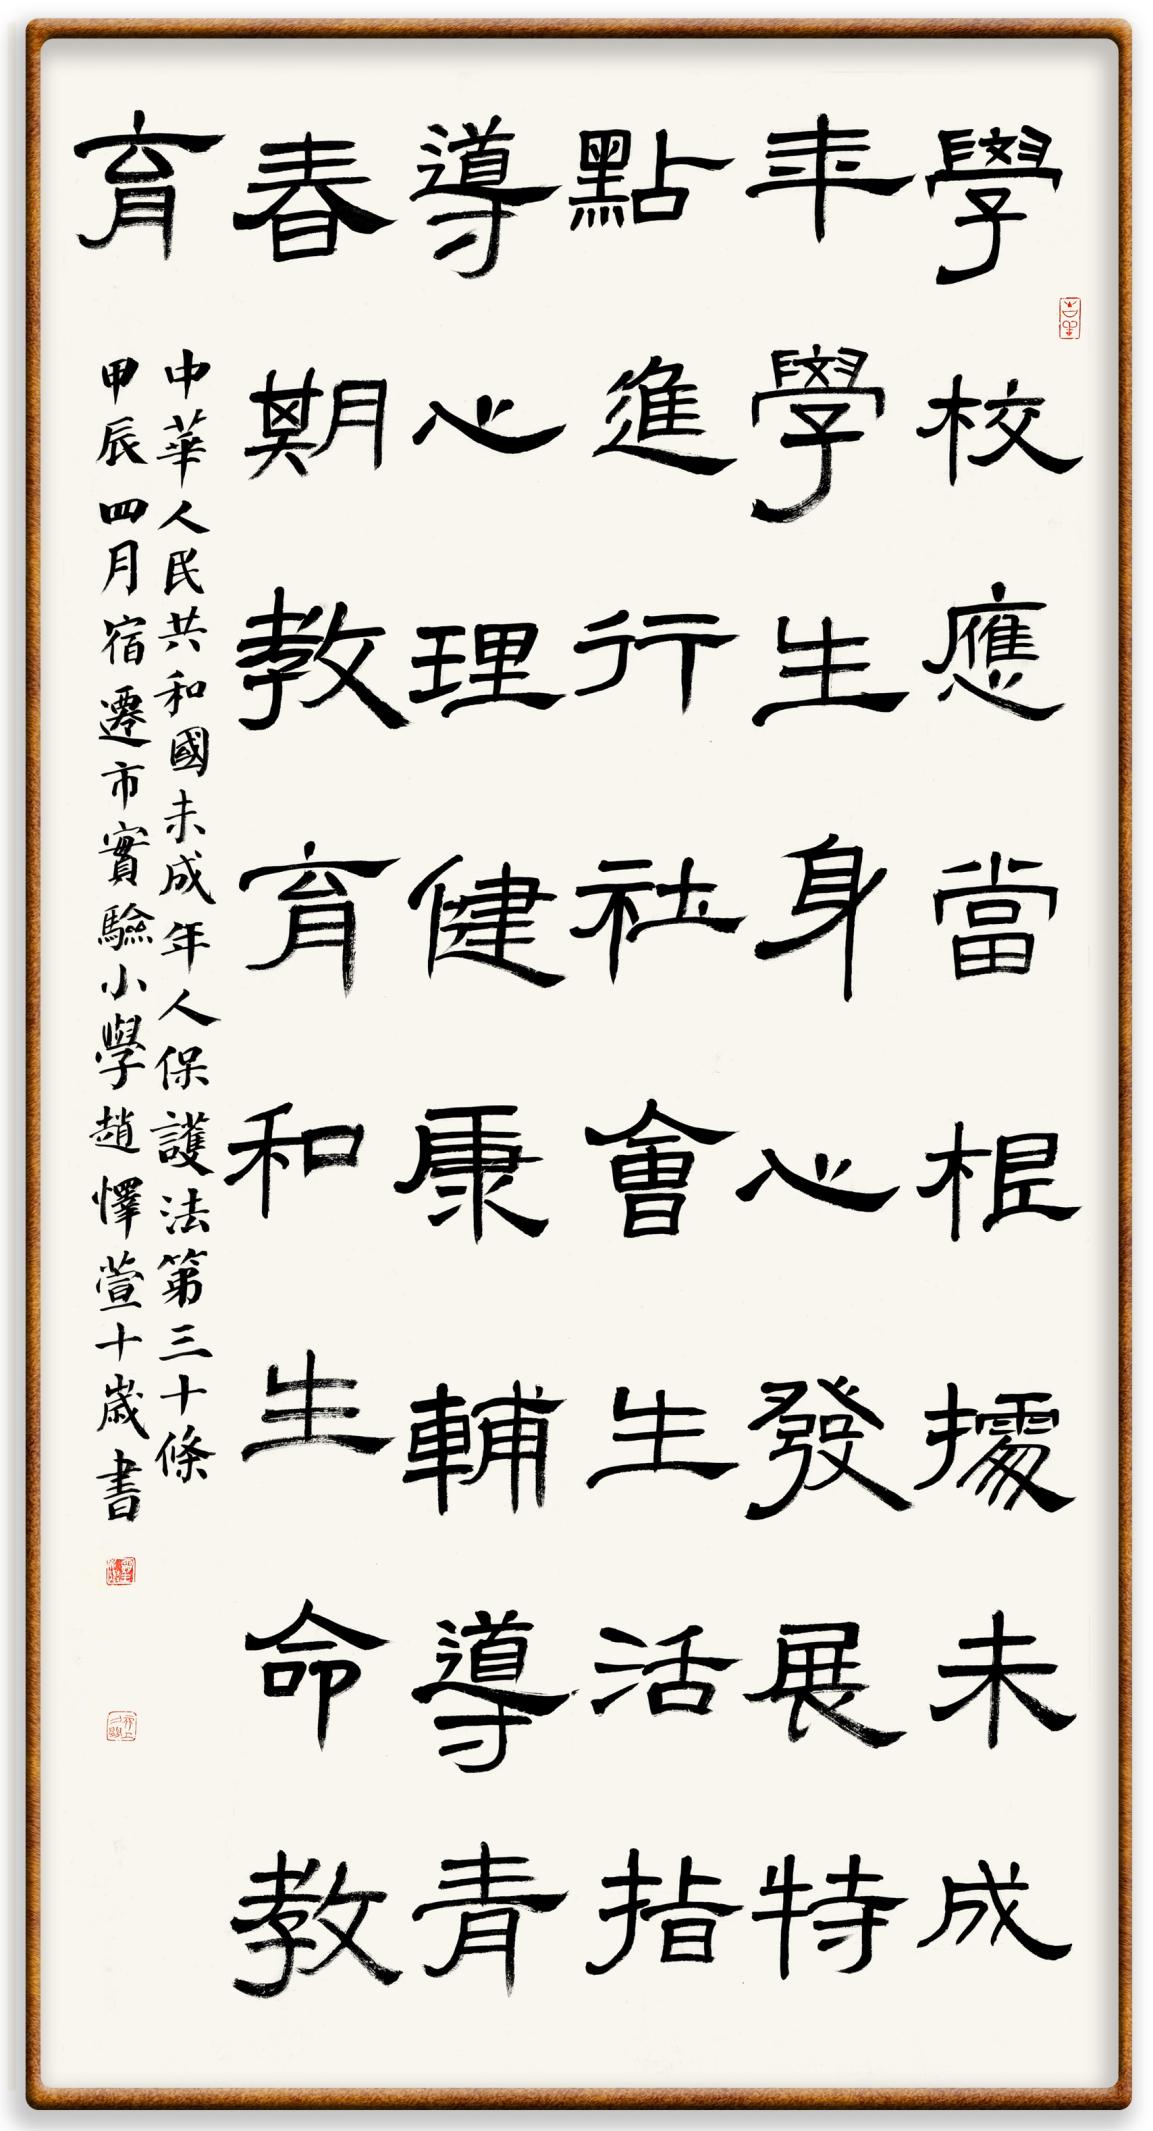 學校應當根據未成
年學生身心發展特
點進行社會生活指
導心理健康輔導青
春期教育和生命教
育
中華人民共和國未成年人保護法第三十條
甲辰四月宿遷市實驗小學趙懌萱十歲書